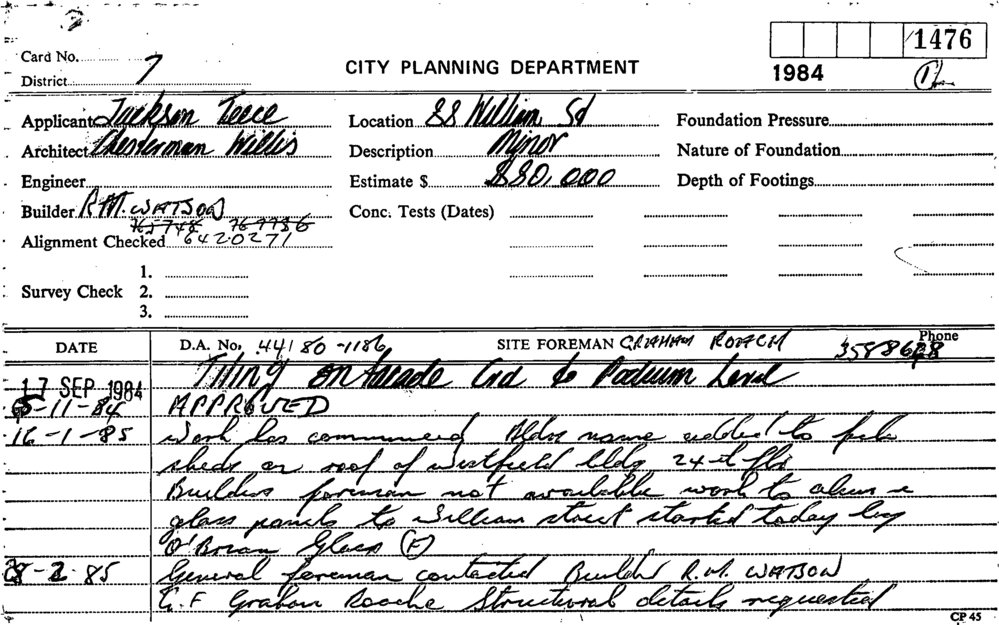 Card No.
District 7
CITY PLANNING DEPARTMENT
1476
1984
Applicant Jackson Teece
Architect Chesterman Willis
Engineer
Builder R.M. WATSON
Alignment Checked 6420271
Survey Check
1.
2.
3.
Location 88 William St
Description Minor
Estimate $ $80,000
Conc. Tests (Dates)
Foundation Pressure
Nature of Foundation
Depth of Footings
DATE
D.A. No. 44/80-1186
SITE FOREMAN GRAHAM ROACH
Phone 3588628
17 SEP 1984 Tiling on facade Grd to Podium Level
5-11-84 APPROVED
16-1-85 Work has commenced Bldrs name added to
sheds on roof of westfield bldg 24th flr
Builders foreman not available work to
glass panels to William street started today by
O'Brian Glass (F)
28-2-85 General foreman contacted Builder R.M. WATSON
G.F Graham Rooche Structural details requested
CP 45